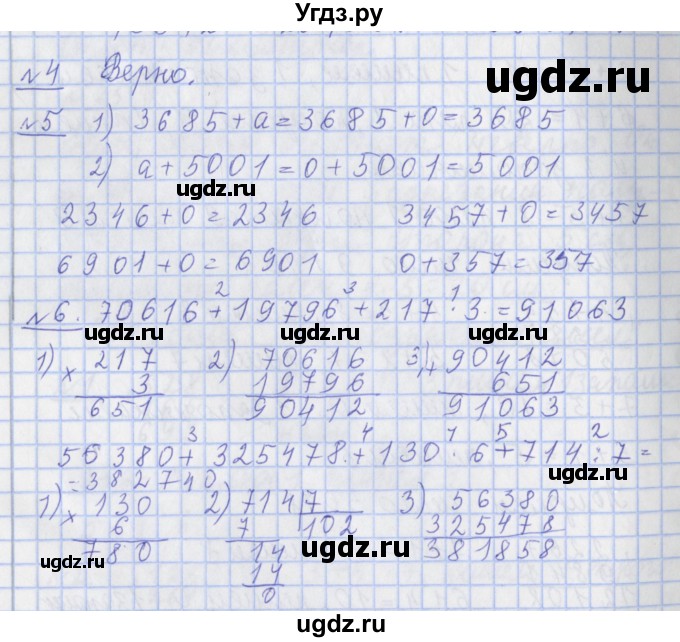 Угдз.ру
№4 Верно.
ugdz.ru
№5 1) 3685+а=3685+0=3685
2) а+5001=0+5001=5001
ugdz.ru
2346+0=2346 3457+0=3457
ugdz.ru
6901+0=6901 0+357=357
2 3 1
№6. 70616+19796+217·3=91063
ugdz.ru ugdz.ru
1) 217 2) 70616 3) +90412
× 3 19796 651
651 90412 91063
ugdz.ru
3 4 1 5 2
56380+325478+130·6+714:7=
=382740
1) 130 2) 714 7 3) 56380
× 6 7 102 325478
780 14 381858
14
0
ugdz.ru ugdz.ru
ugdz.ru
Угдз.ру